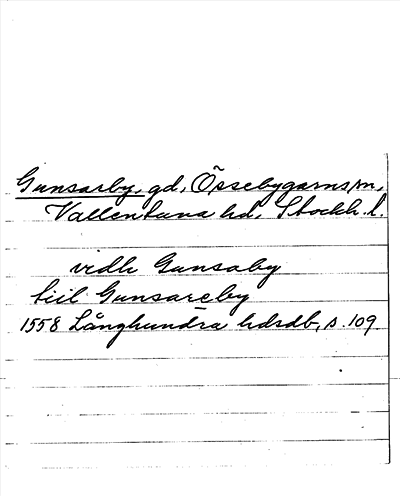 Gunsarby, gd, Össebygarns sn,
Vallentuna hd, Stockh. l.
vidh Gunsaby
tiil Gunsareby
1558 Långhundra hdsdb, s. 109